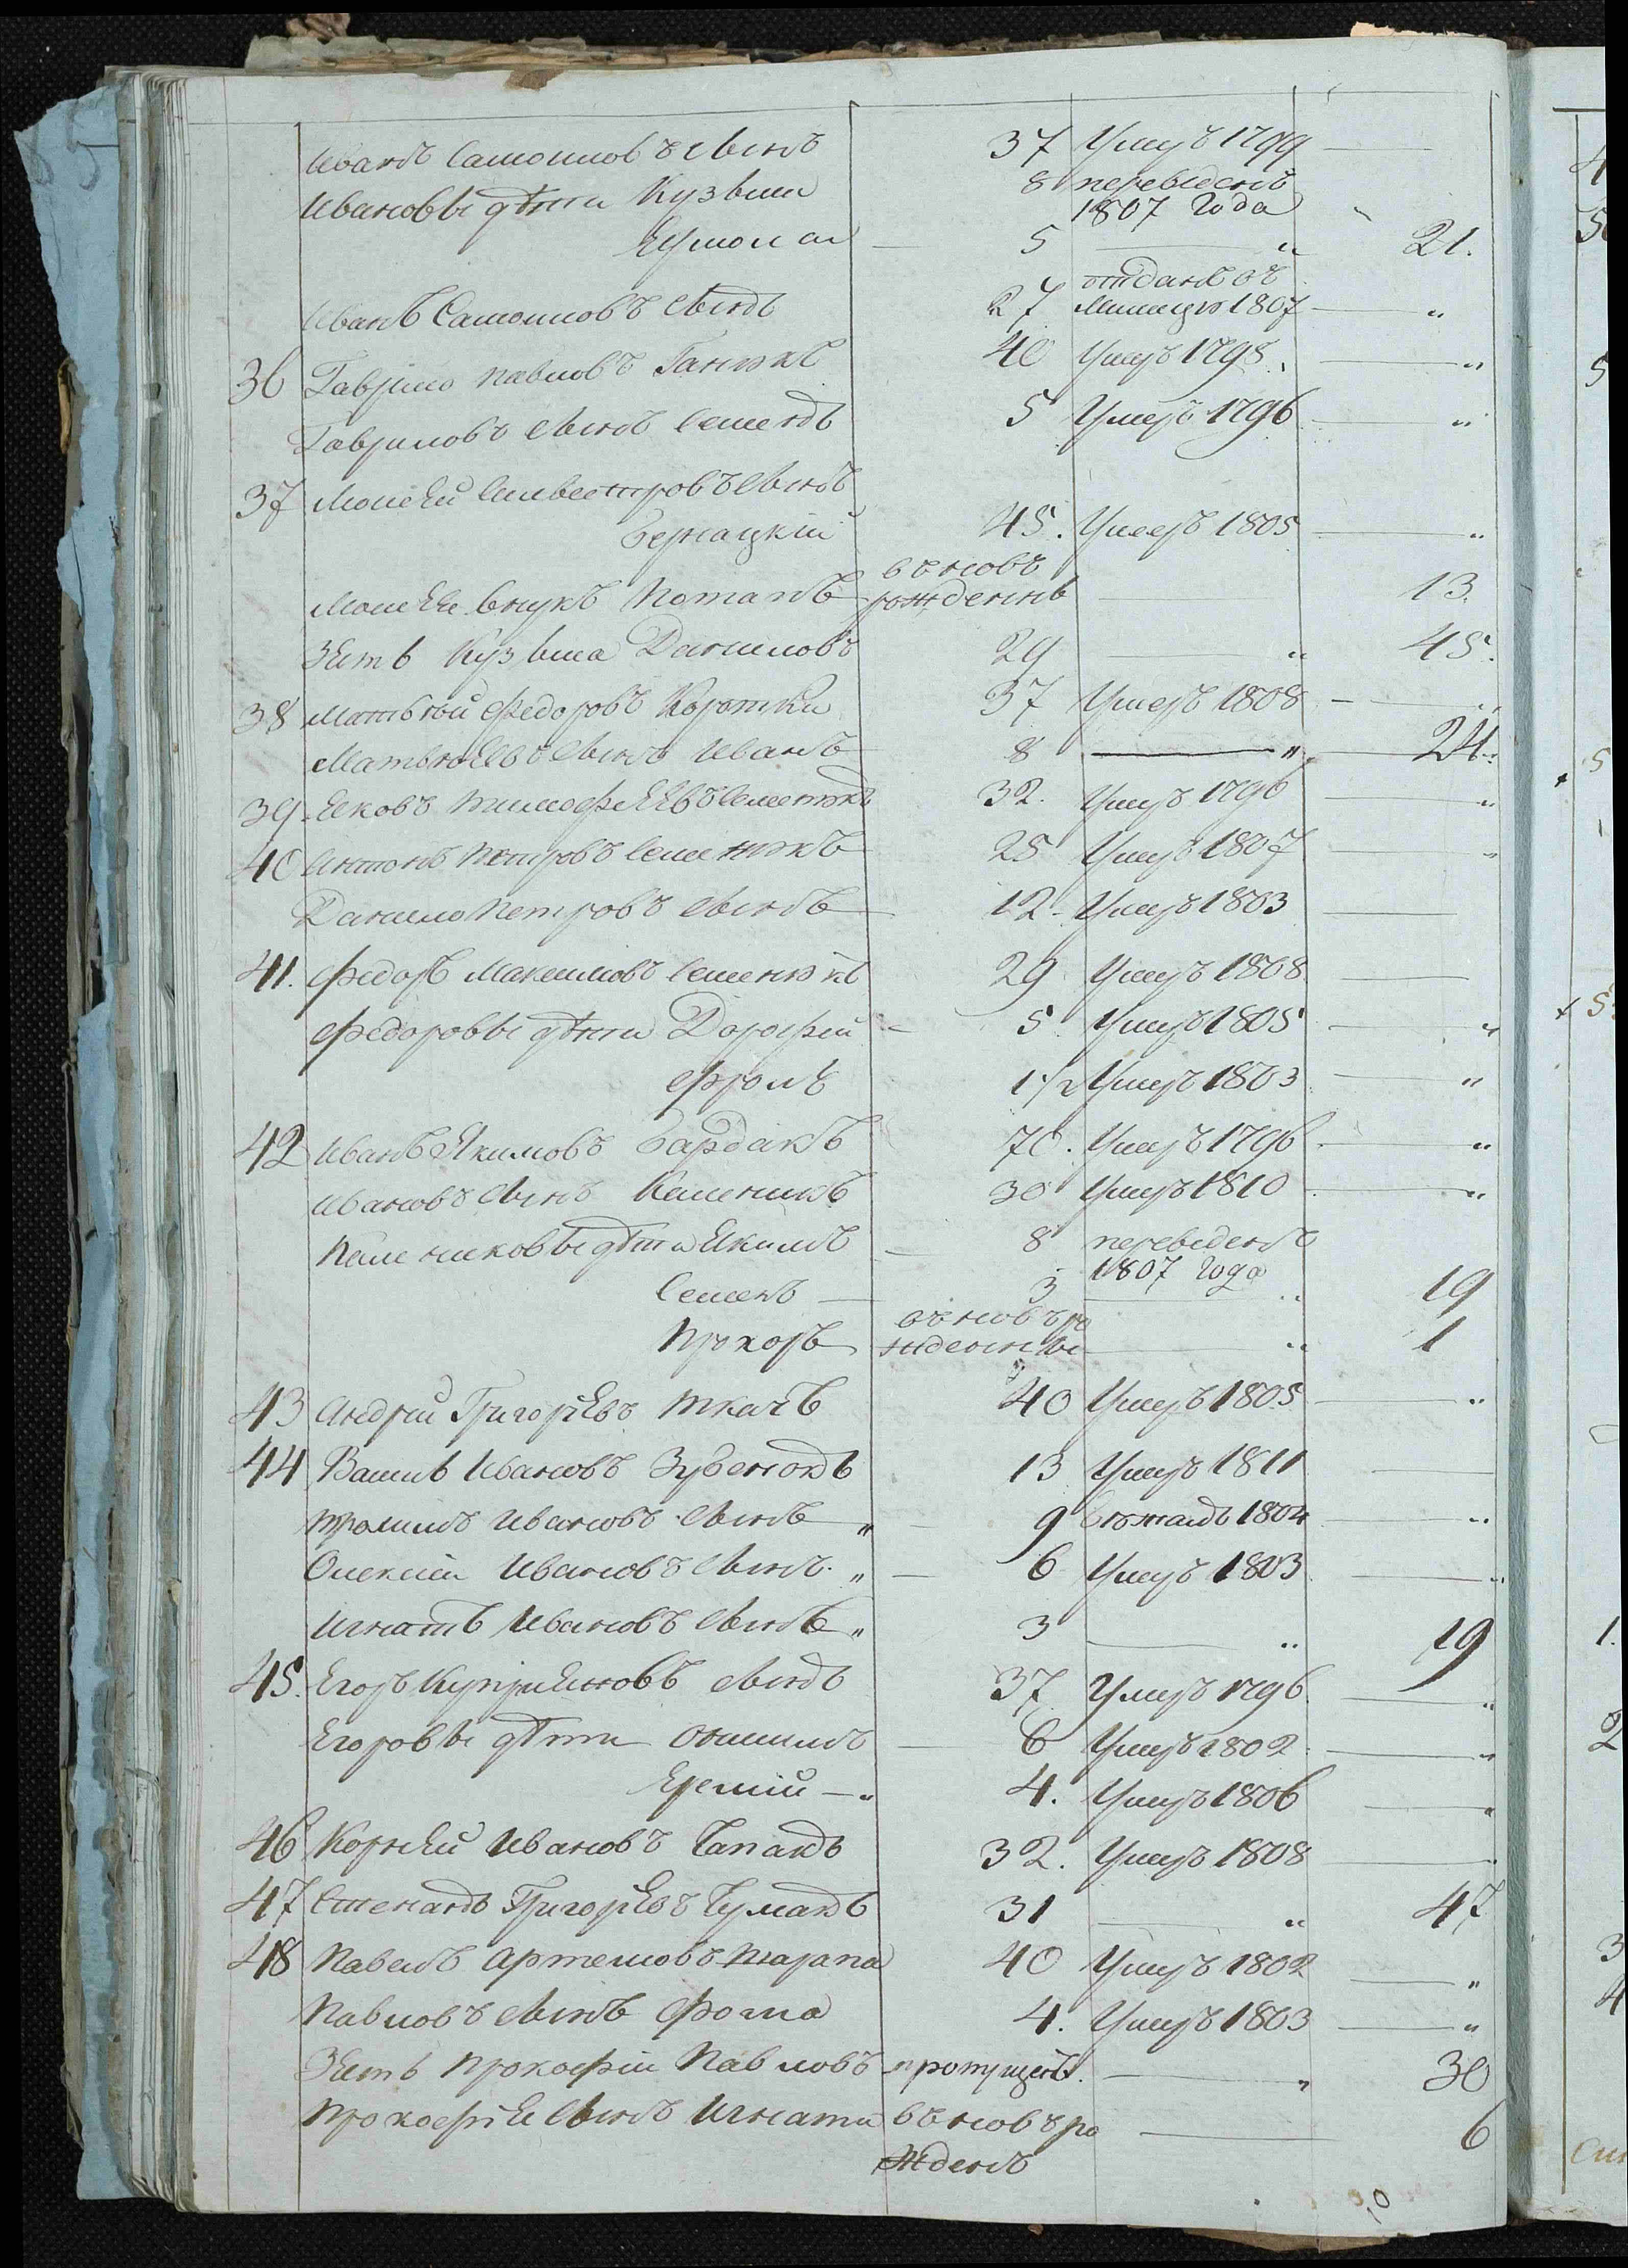 Иванъ Самоиловъ Сынъ 37 Умеръ 1799
Ивановы дѣти Кузьма 8 переведенъ
1807 Года
Ермолай 5 — „ 21.
отданъ въ
Иванъ Самоиловъ Сынъ 27 Милицию 1807 — „
36 Гаврило Павловъ Ганюкъ 40 Умеръ 1798. — „
Гавриловъ Сынъ Семенъ 5 Умеръ 1796 — „
37 Моисей Силвестровъ Сынъ
Бернацкій 45. Умеръ 1805 — „
въновь
Моисея внукъ Потапъ рожденны — 13.
Зять Кузьма Даниловъ 29 — „ 45.
38 Матьвей Федоровъ Коротки 37 Умеръ 1808 — „
Матьвѣевъ Сынъ Иванъ 8 — „ 24.
39. Яковъ Тимофеевъ Семенюкъ 32. Умеръ 1796 — „
40 Антонъ Петровъ Семенюкъ 25 Умеръ 1807 — „
Данило Петровъ Сынъ 12. Умеръ 1803 —
41. Федоръ Максимовъ Семенюкъ 29 Умеръ 1808 —
Федоровы дѣти Дорофей — 5. Умеръ 1805 — „
Фролъ 1/2 Умеръ 1803 — „
42 Иванъ Якимовъ Бардакъ 70. Умеръ 1796 — „
Ивановъ Сынъ Каленикъ 30 Умеръ 1810 — „
Калениковы дѣти Якимъ — 8 переведенъ
1807 Года
Семенъ — 3 — „ 19
въновъ ро
Прохоръ жденны — „ 1
43 Андрей Григорьевъ Ткачъ 40 Умеръ 1805 — „
44 Василь Ивановъ Зубенокъ 13 Умеръ 1811 —
Трофимъ Ивановъ Сынъ „ — 9 Бѣжалъ 1804 — „
Олексей Ивановъ Сынъ „ — 6 Умеръ 1803 — „
Игнатъ Ивановъ Сынъ „ 3 — „ 19
45. Егоръ Куприяновъ Сынъ 37. Умеръ 1796. — „
Егоровы дѣти Онисимъ — 6 Умеръ 1802. — „
Еремій — „ 4. Умеръ 1806 — „
46 Корней Ивановъ Чапакъ 32. Умеръ 1808 —
47 Степанъ Григорьевъ Чумакъ 31 — „ 47
48 Павелъ Артемовъ Тарапа 40 Умеръ 1802 — „
Павловъ Сынъ Фома 4. Умеръ 1803 — „
Зять Прокофій Павловъ пропущенъ. — „ 30
Прокофіе Сынъ Игнатъ въновъ ро — 6
жденъ